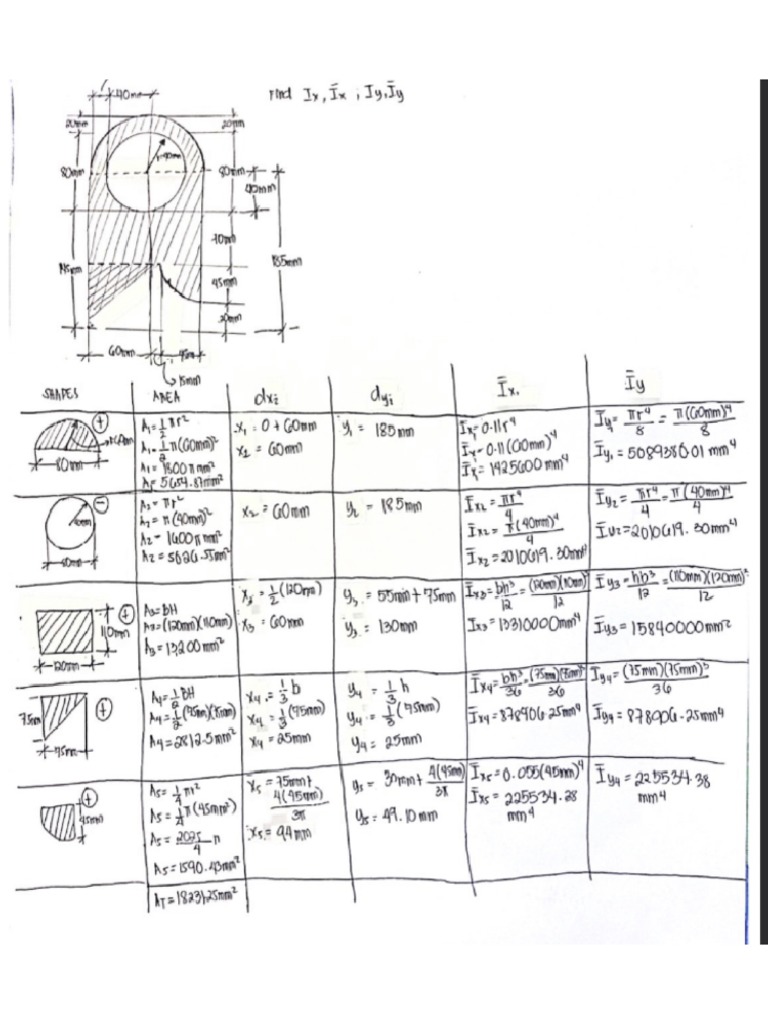 Find Ix, I̅x ; Iy, I̅y
40mm
20mm
20mm
r=40mm
80mm
80mm
40mm
70mm
185mm
45mm
20mm
60mm
45mm
15mm
SHAPES
AREA
dxi
dyi
I̅x.
I̅y
A₁=1/2 πr²
A₁=1/2 π(60mm)²
A₁=1800π mm²
A₁=5654.87mm²
x₁ = 0 + 60mm
x₂ = 60mm
y₁ = 185mm
I̅x₁=0.11r⁴
I̅x₁=0.11(60mm)⁴
I̅x₁=1425600mm⁴
I̅y₁=πr⁴/8 = π(60mm)⁴/8
I̅y₁=5089380.01mm⁴
80mm
A₂=πr²
A₂=π(40mm)²
A₂=1600π mm²
A₂=5026.55mm²
x₂=60mm
y₂=185mm
I̅x₂=πr⁴/4
I̅x₂=π(40mm)⁴/4
I̅x₂=2010619.30mm⁴
I̅y₂=πr⁴/4=π(40mm)⁴/4
I̅y₂=2010619.30mm⁴
110mm
120mm
A₃=BH
A₃=(120mm)(110mm)
A₃=13,200mm²
x₃=1/2(120mm)
x₃=60mm
y₃=55mm+75mm
y₃=130mm
I̅x₃=bh³/12=(120mm)(110mm)³/12
I̅x₃=13310000mm⁴
I̅y₃=hb³/12=(110mm)(120mm)³/12
I̅y₃=15840000mm²
75mm
75mm
A₄=1/2 BH
A₄=1/2(75mm)(75mm)
A₄=2812.5mm²
x₄=1/3 b
x₄=1/3(75mm)
x₄=25mm
y₄=1/3 h
y₄=1/3(75mm)
y₄=25mm
I̅x₄=bh³/36=(75mm)(75mm)³/36
I̅x₄=878906.25mm⁴
I̅y₄=(75mm)(75mm)³/36
I̅y₄=878906.25mm⁴
45mm
A₅=1/4 πr²
A₅=1/4 π(45mm²)
A₅=2025/4 π
A₅=1590.43mm²
x₅=75mm+4(45mm)/3π
x₅=94mm
y₅=30mm+4(45mm)/3π
y₅=49.10mm
I̅x₅=0.055(45mm)⁴
I̅x₅=225534.38mm⁴
I̅y₄=225534.38mm⁴
A_T=18231.25mm²